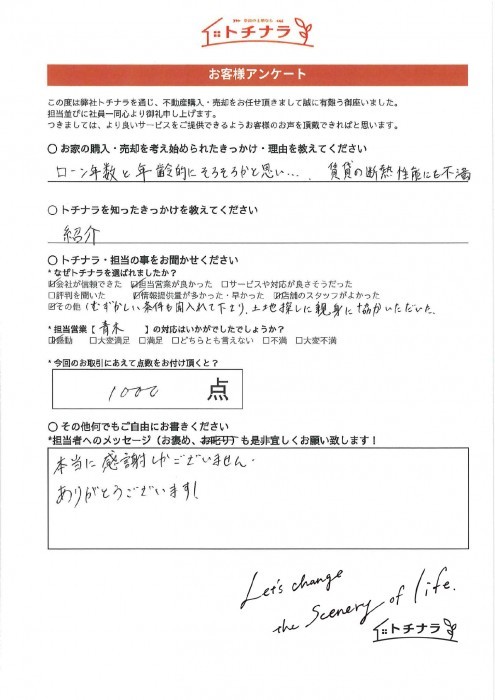 トチナラ
お客様アンケート
この度は弊社トチナラを通じ、不動産購入・売却をお任せ頂きまして誠に有難う御座いました。
担当並びに社員一同心より御礼申し上げます。
つきましては、より良いサービスをご提供できるようお客様のお声を頂戴できればと思います。
〇 お家の購入・売却を考え始められたきっかけ・理由を教えてください
ローン年数と年齢的にそろそろかと思い…. 賃貸の断熱性能にも不満
〇 トチナラを知ったきっかけを教えてください
紹介
〇 トチナラ・担当の事をお聞かせください
* なぜトチナラを選ばれましたか？
☑会社が信頼できた ☑担当営業が良かった □サービスや対応が良さそうだった
□評判を聞いた ☑情報提供量が多かった・早かった ☑店舗のスタッフがよかった
☑その他 (むずかしい条件も聞入れて下さり、土地探しに親身に協力いただいた。
* 担当営業【 青木 】の対応はいかがでしたでしょうか？
☑感動 □大変満足 □満足 □どちらとも言えない □不満 □大変不満
* 今回のお取引にあえて点数をお付け頂くと？
1000 点
〇 その他何でもご自由にお書きください
*担当者へのメッセージ（お褒め、お叱り）も是非宜しくお願い致します！
本当に感謝しかございません.
ありがとうございます!
Let's change
the scenery of life.
トチナラ